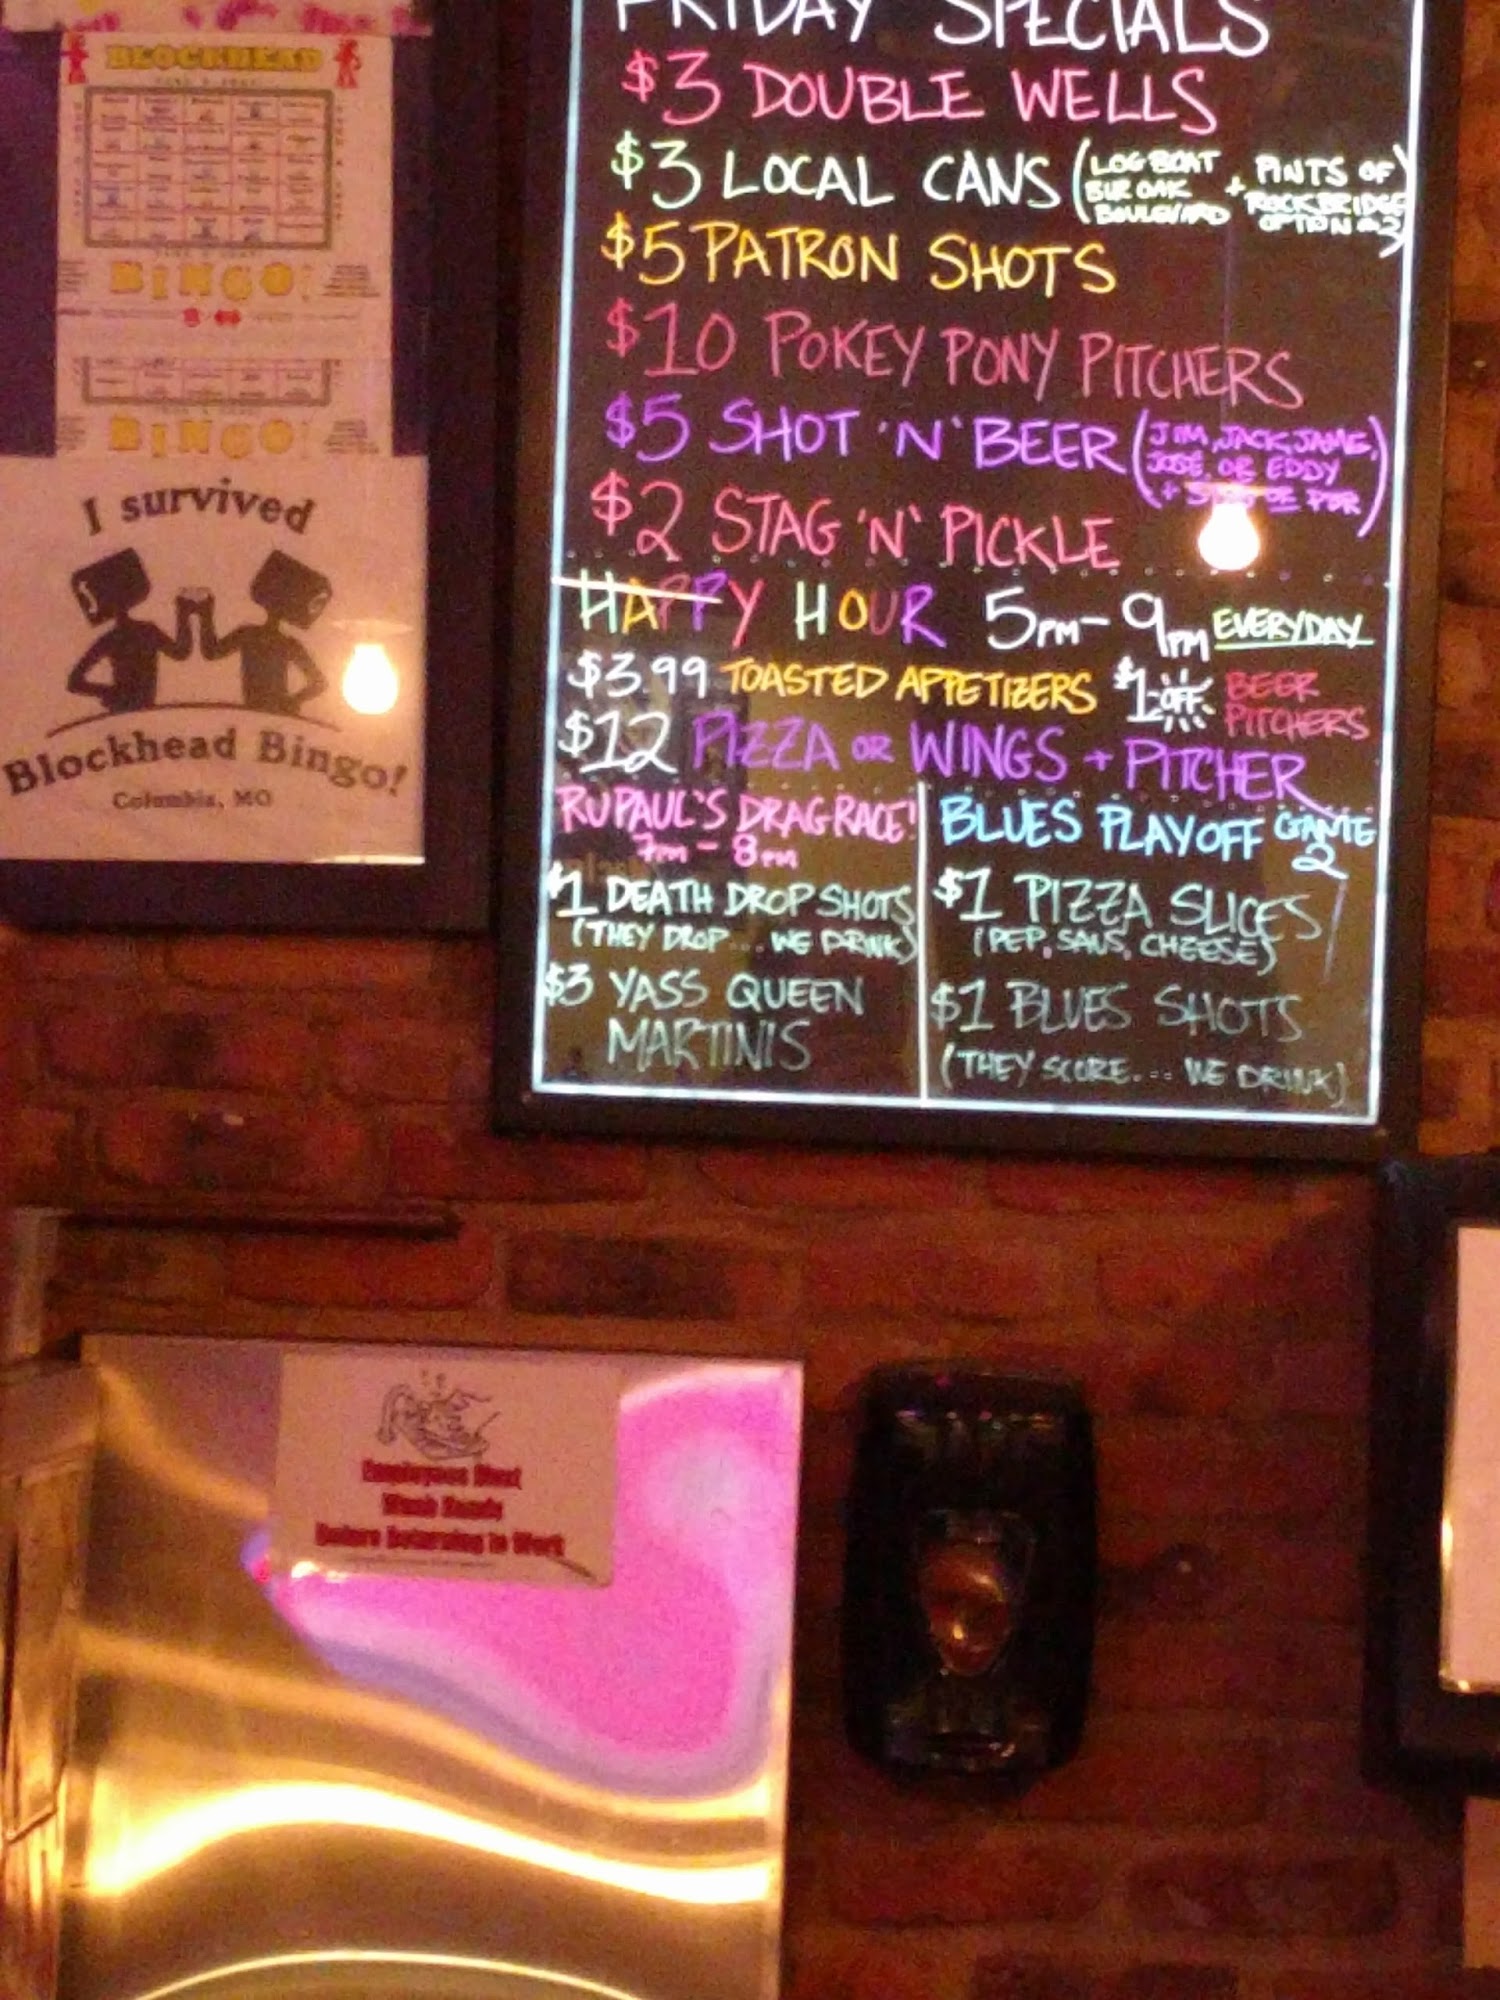 BLOCKHEAD
BINGO!
BINGO!
I survived
Blockhead Bingo!
Columbia, MO
FRIDAY SPECIALS
$3 DOUBLE WELLS
$3 LOCAL CANS (LOGBOAT
BUR OAK
BOULEVARD
+ PINTS OF
ROCK BRIDGE
OPTION #3)
$5 PATRON SHOTS
$10 POKEY PONY PITCHERS
$5 SHOT 'N' BEER (JIM, JACK, JAME,
JOSE, OR EDDY
+ PBR)
$2 STAG 'N' PICKLE
HAPPY HOUR 5PM-9PM EVERYDAY
$3.99 TOASTED APPETIZERS $1 OFF BEER
PITCHERS
$12 PIZZA OR WINGS + PITCHER
RUPAUL'S DRAG RACE!
7PM - 8PM
$1 DEATH DROP SHOTS
(THEY DROP... WE DRINK)
$3 YASS QUEEN
MARTINIS
BLUES PLAYOFF GAME
2
$1 PIZZA SLICES
(PEP, SAUS, CHEESE)
$1 BLUES SHOTS
(THEY SCORE.... WE DRINK)
Employees Must
Wash Hands
Before Returning to Work